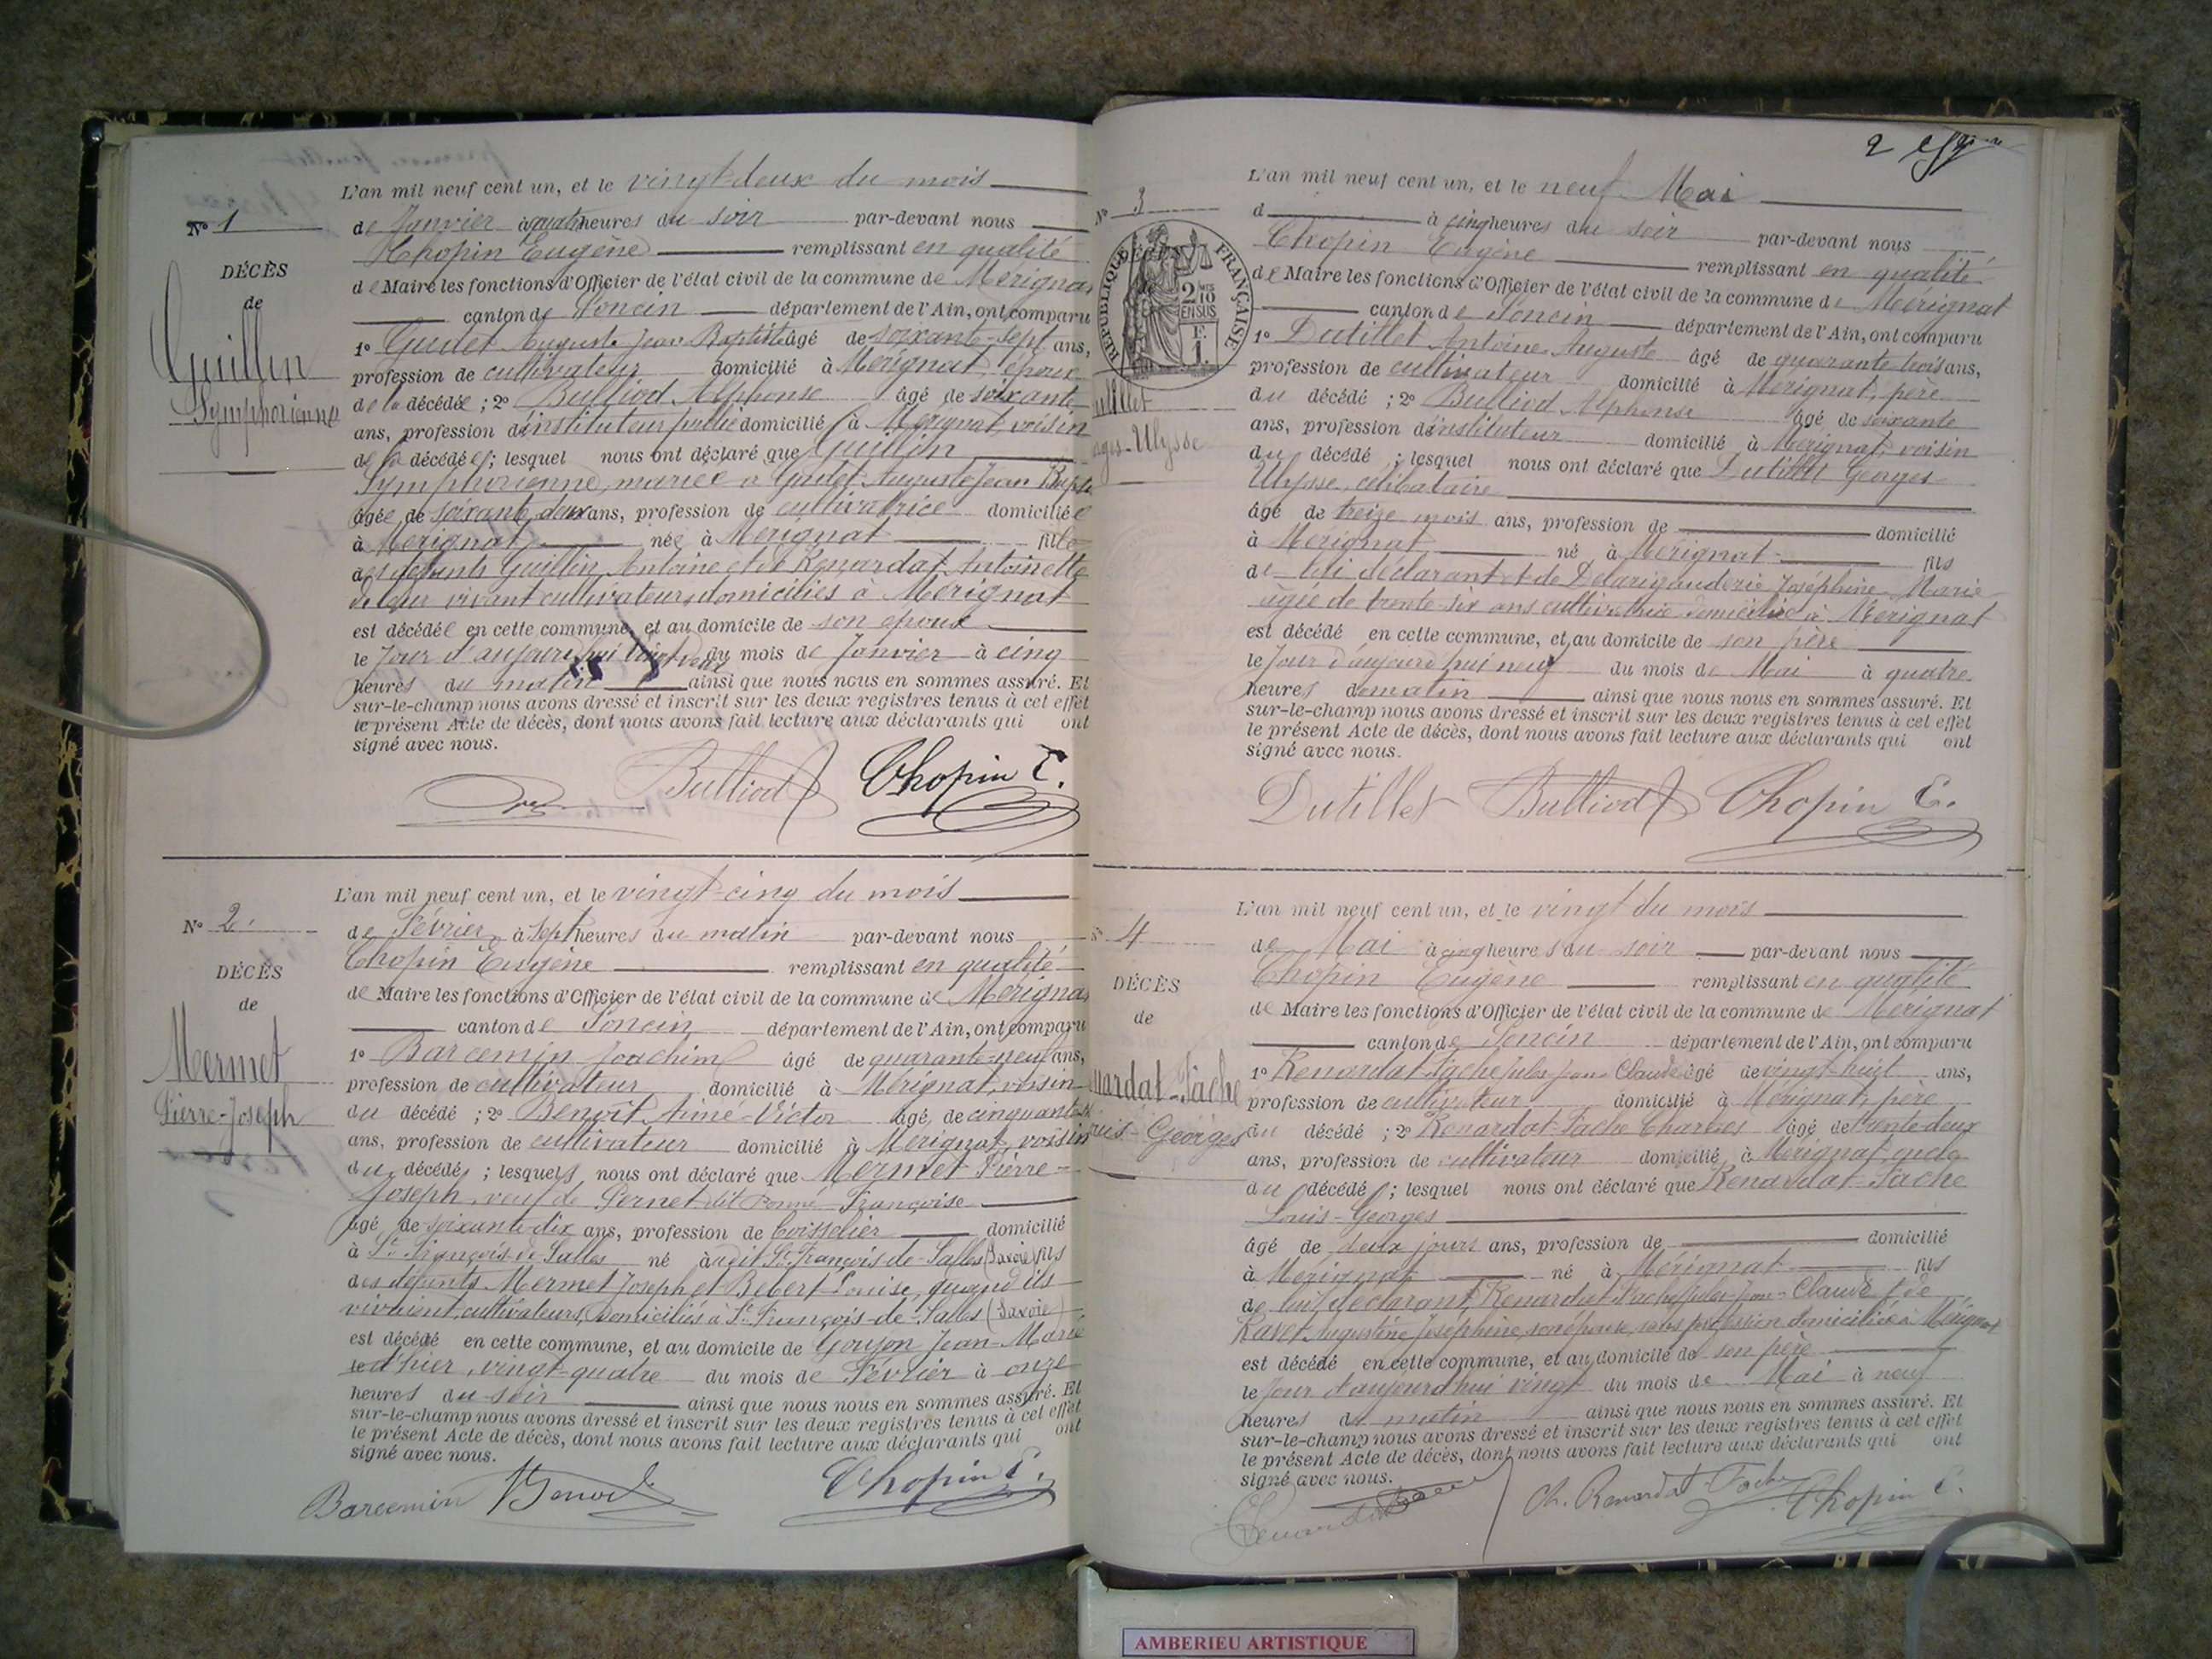 L'an mil neuf cent un, et le vingt-deux du mois
N° 1
de Janvier à quatre heures du soir par-devant nous
Chopin Eugène remplissant en qualité
DÉCÈS
de Maire les fonctions d'Officier de l'état civil de la commune de Merignat
de
canton de Poncin département de l'Ain, ont comparu
Guillin
Symphorienne
1° Gudet Auguste Jean Baptiste âgé de soixante-sept ans,
profession de cultivateur domicilié à Merignat, époux
de la décédée ; 2° Bulliod Alphonse âgé de soixante
ans, profession d'instituteur public domicilié à Merignat, voisin
de la décédée ; lesquel nous ont déclaré que Guillin
Symphorienne, mariée à Gudet Auguste Jean Bapt
âgée de soixante deux ans, profession de cultivatrice domiciliée
à Merignat née à Merignat fille
des défunts Guillin Antoine et de Renardat Antoinette
de leur vivant cultivateurs domiciliés à Merignat
est décédée en cette commune, et au domicile de son époux
le Jour d'aujourd'hui vingt deux du mois de Janvier à cinq
heures du matin ainsi que nous nous en sommes assuré. Et
sur-le-champ nous avons dressé et inscrit sur les deux registres tenus à cet effet
le présent Acte de décès, dont nous avons fait lecture aux déclarants qui ont
signé avec nous.
Bulliod Chopin E.
L'an mil neuf cent un, et le vingt-cinq du mois
N° 2.
de Février à sept heures du matin par-devant nous
Chopin Eugène remplissant en qualité
DÉCÈS
de Maire les fonctions d'Officier de l'état civil de la commune de Merignat
de
canton de Poncin département de l'Ain, ont comparu
Mermet
Pierre-Joseph
1° Barcemin Joachim âgé de quarante-neuf ans,
profession de cultivateur domicilié à Mérignat, voisin
du décédé ; 2° Benoît Aimé-Victor âgé de cinquante
ans, profession de cultivateur domicilié à Mérignat, voisin
du décédé ; lesquels nous ont déclaré que Mermet Pierre-
Joseph, veuf de Pernet dit Françoise
âgé de soixante-dix ans, profession de boisselier domicilié
à St François de Salles né à dit St François-de-Salles (Savoie) fils
des défunts Mermet Joseph et Bebert Louise, quand ils
vivaient, cultivateurs, domiciliés à St François-de-Salles (Savoie)
est décédé en cette commune, et au domicile de Goujon Jean-Marie
le d'hier, vingt-quatre du mois de Février à onze
heures du soir ainsi que nous nous en sommes assuré. Et
sur-le-champ nous avons dressé et inscrit sur les deux registres tenus à cet effet
le présent Acte de décès, dont nous avons fait lecture aux déclarants qui ont
signé avec nous.
Barcemin Benoît Chopin E.
2
L'an mil neuf cent un, et le neuf Mai
N° 3
d à cinq heures du soir par-devant nous
Chopin Eugène remplissant en qualité
RÉPUBLIQUE FRANÇAISE
2/10 EN SUS
de Maire les fonctions d'Officier de l'état civil de la commune de Merignat
canton de Poncin département de l'Ain, ont comparu
1° Dutillet Antoine Auguste âgé de quarante trois ans,
profession de cultivateur domicilié à Merignat, père
du décédé ; 2° Bulliod Alphonse âgé de soixante
utillet
rges-Ulysse
ans, profession d'instituteur domicilié à Merignat, voisin
du décédé ; lesquel nous ont déclaré que Dutillet Georges
Ulysse, célibataire
âgé de treize mois ans, profession de domicilié
à Merignat né à Merignat fils
de lui déclarant et de Delarigauderie Joséphine Marie
âgée de trente-six ans cultivatrice domiciliée à Merignat
est décédé en cette commune, et au domicile de son père
le Jour d'aujourd'hui neuf du mois de Mai à quatre
heures du matin ainsi que nous nous en sommes assuré. Et
sur-le-champ nous avons dressé et inscrit sur les deux registres tenus à cet effet
le présent Acte de décès, dont nous avons fait lecture aux déclarants qui ont
signé avec nous.
Dutillet Bulliod Chopin E.
L'an mil neuf cent un, et le vingt du mois
N° 4
de Mai à cinq heures du soir par-devant nous
Chopin Eugène remplissant en qualité
DÉCÈS
de Maire les fonctions d'Officier de l'état civil de la commune de Mérignat
de
canton de Poncin département de l'Ain, ont comparu
nardat-Tache
uis-Georges
1° Renardat-Tache Jules Jean Claude âgé de vingt-huit ans,
profession de cultivateur domicilié à Mérignat, père
du décédé ; 2° Renardat-Tache Charles âgé de trente-deux
ans, profession de cultivateur domicilié à Mérignat, oncle
du décédé ; lesquel nous ont déclaré que Renardat-Tache
Louis-Georges
âgé de deux jours ans, profession de domicilié
à Mérignat né à Mérignat fils
de lui déclarant, Renardat-Tache Jules-Jean-Claude et de
Ravet Augustine Joséphine, son épouse, sans profession domiciliée à Mérignat
est décédé en cette commune, et au domicile de son père
le Jour d'aujourd'hui vingt du mois de Mai à neuf
heures du matin ainsi que nous nous en sommes assuré. Et
sur-le-champ nous avons dressé et inscrit sur les deux registres tenus à cet effet
le présent Acte de décès, dont nous avons fait lecture aux déclarants qui ont
signé avec nous.
Ch. Renardat-Tache Chopin E.
AMBERIEU ARTISTIQUE